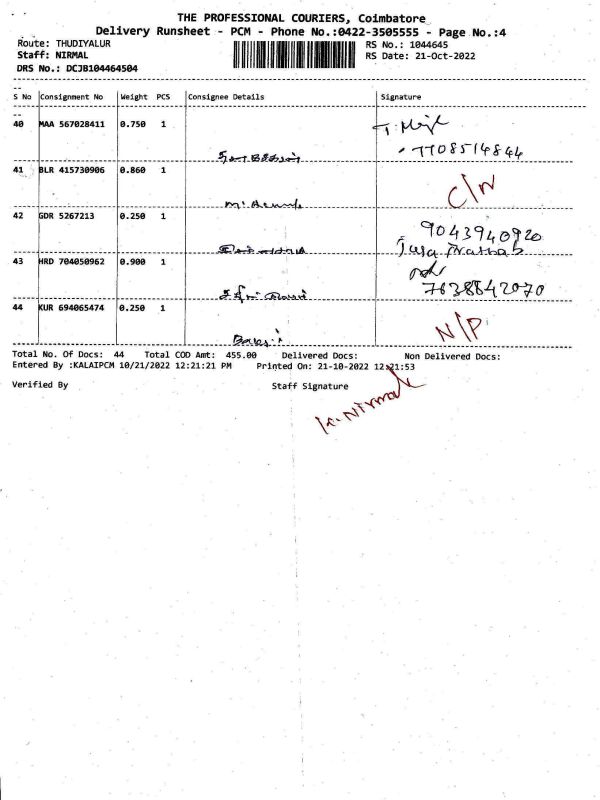 THE PROFESSIONAL COURIERS, Coimbatore
Delivery Runsheet - PCM - Phone No.:0422-3505555 - Page No.:4
Route: THUDIYALUR RS No.: 1044645
Staff: NIRMAL RS Date: 21-Oct-2022
DRS No.: DCJB104464504
S No Consignment No Weight PCS Consignee Details Signature
40 MAA 567028411 0.750 1
7708514844
41 BLR 415730906 0.860 1
C/N
42 GDR 5267213 0.250 1
9043940920
43 HRD 704050962 0.900 1
7638842070
44 KUR 694065474 0.250 1
N/P
Total No. Of Docs: 44 Total COD Amt: 455.00 Delivered Docs: Non Delivered Docs:
Entered By :KALAIPCM 10/21/2022 12:21:21 PM Printed On: 21-10-2022 12:21:53
Verified By Staff Signature
K. Nirmal